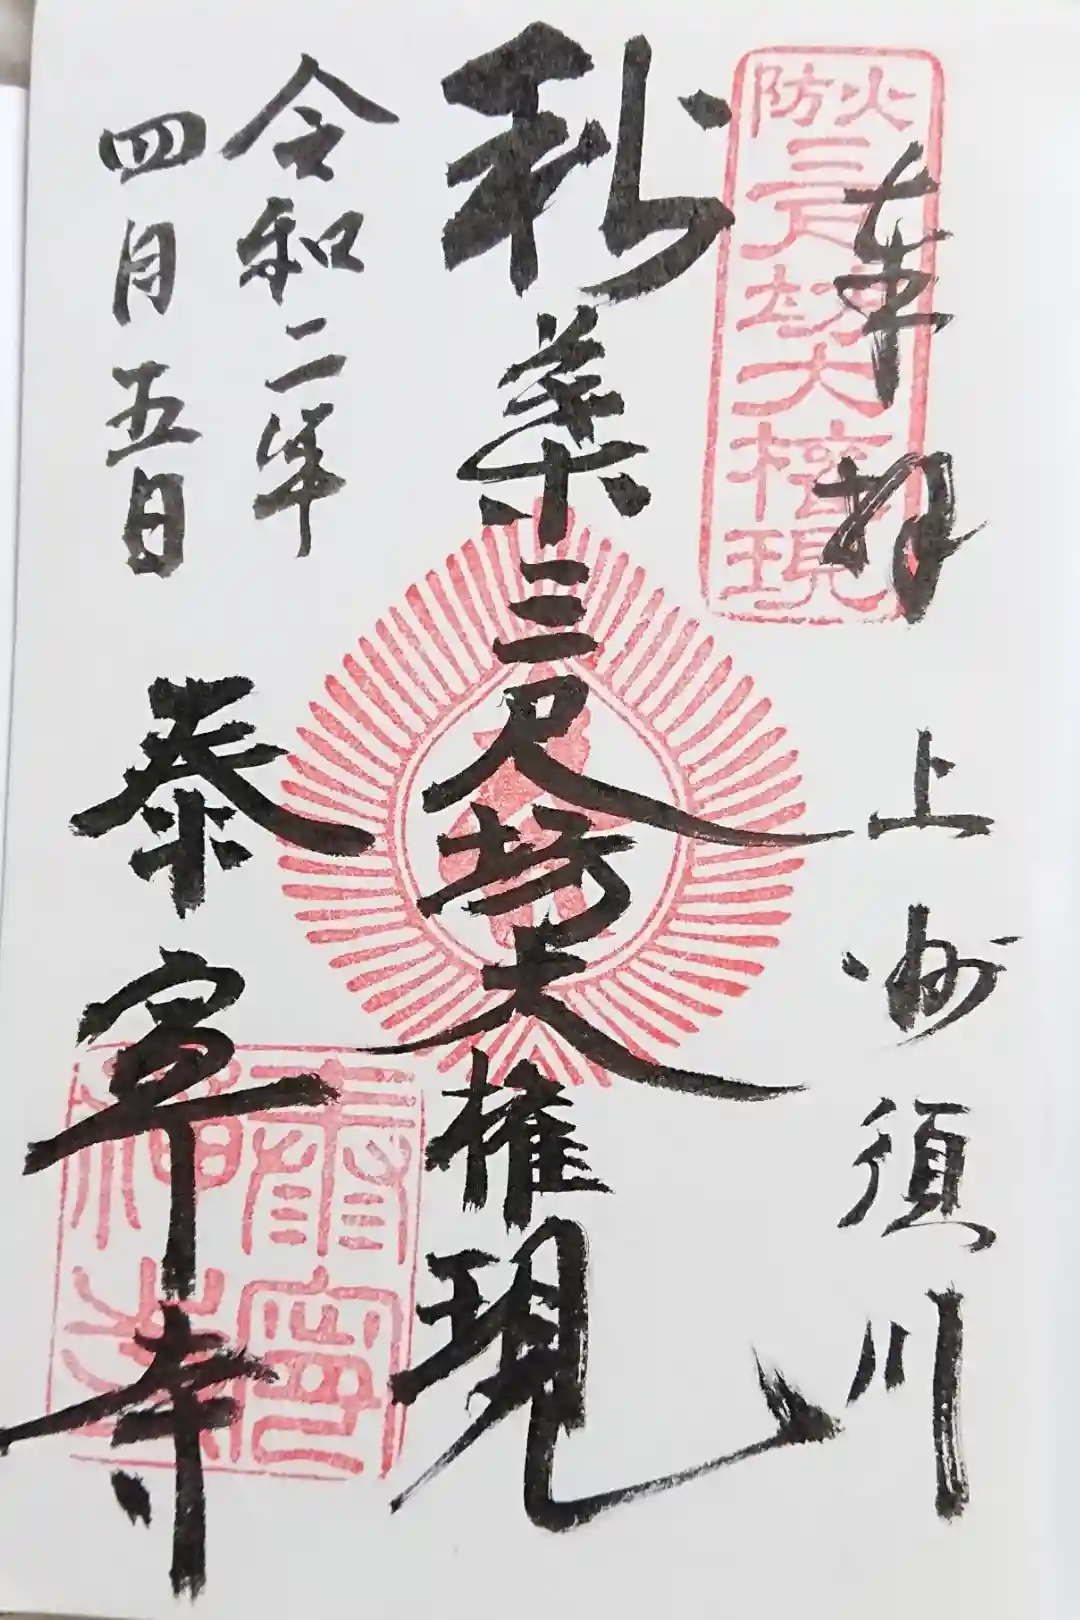 奉拝　上州須川
火防
三尺坊大権現
秋葉三尺坊大権現
令和二年
四月五日
泰寧寺